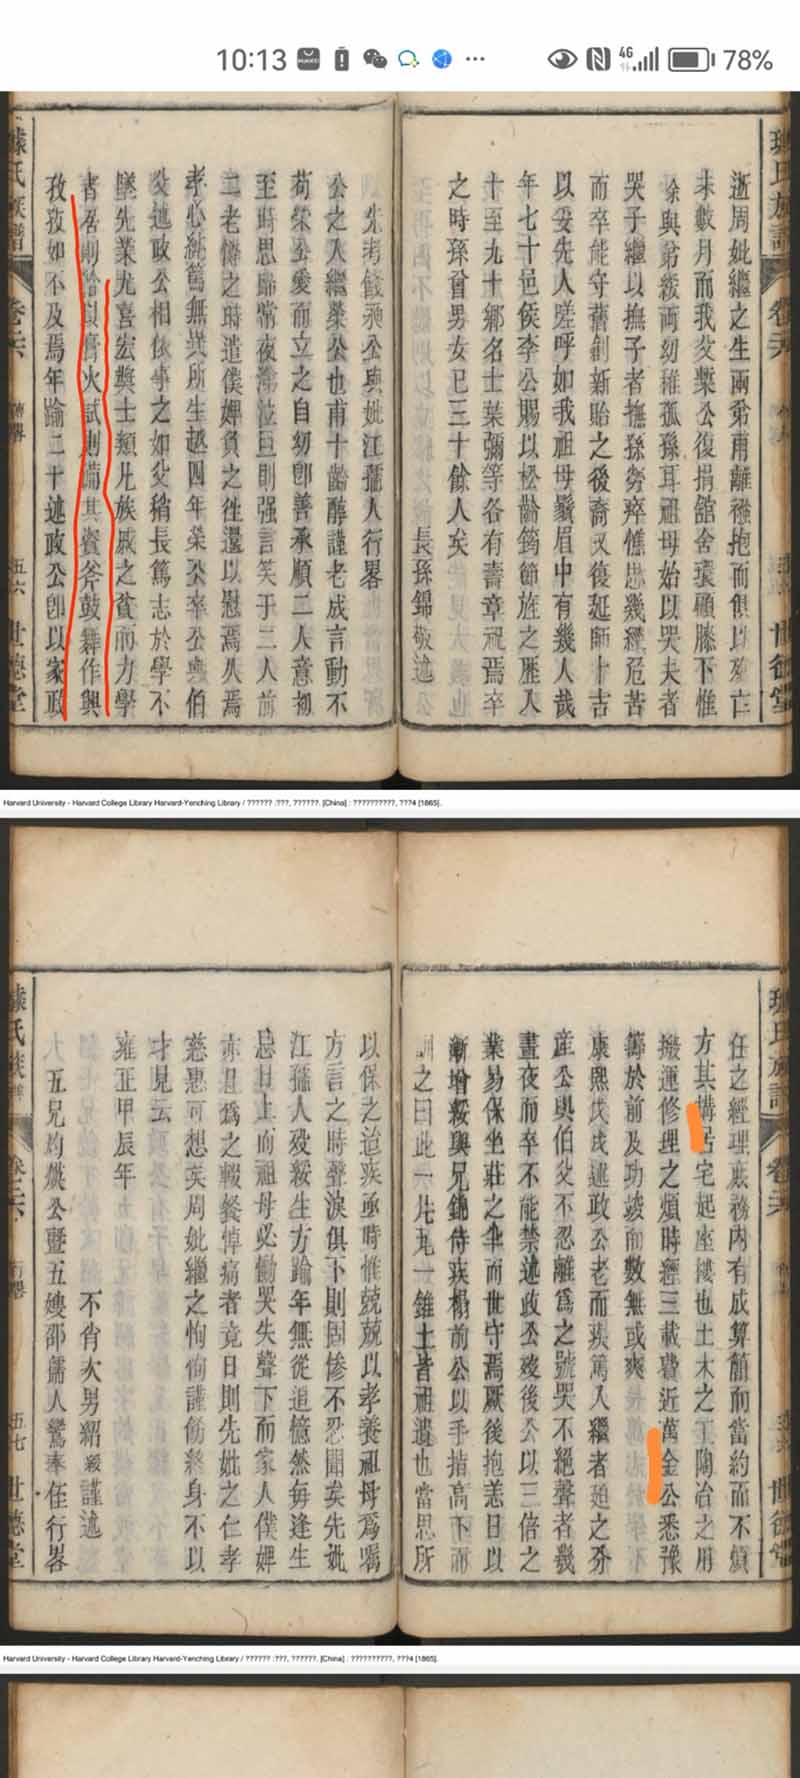 10:13
4G
78%
逝周妣繼之生兩弟甫離襁抱而俱以殤亡
未數月而我父槩公復捐館舍環顧膝下惟
余與弟綏兩幼稚孤孫耳祖母始以哭夫者
哭子繼以撫子者撫孫勞瘁憔思幾經危苦
而卒能守舊創新貽之後裔又復延師卜吉
以妥先人嗟呼如我祖母鬚眉中有幾人哉
年七十邑侯李公賜以松齡筠節旌之歷八
十至九十鄉名士葉彌等各有壽章祝焉卒
之時孫曾男女已三十餘人矣
長孫錦敬述
先考 公與妣江孺人行畧
公之入繼榮公也甫十齡醇謹老成言動不
苟榮公愛而立之自幼卽善承順二人意初
至時思歸常夜 泣旦則强言笑于二人前
二老憐之時遣僕婢負之往還以慰焉 焉
孝心純篤無異所生越四年榮公卒公與伯
父述政公相依事之如父稍長篤志於學不
墜先業尤喜宏奬士類凡族戚之貧而力學
者居則 以膏火試則備其資斧鼓舞作興
孜孜如不及焉年踰二十述政公卽以家政
卷六
五六
世德堂
Harvard University - Harvard College Library Harvard-Yenching Library / ?????? :???, ??????. [China] : ??????????, ???4 [1865].
任之經理庶務內有成算簡而當約而不煩
方其搆居宅起座樓也土木之工陶冶之用
搬運修理之煩時經三載費近萬金公悉豫
籌於前及功竣而數無或爽
康熙戊戌述政公老而疾篤入繼者廹之分
產公與伯父不忍離爲之號哭不絕聲者幾
晝夜而卒不能禁述政公歿後公以三倍之
業易保坐莊之傘而世守焉厥後抱恙日以
漸增綏與兄錦侍疾榻前公以手指高下而
訓之曰此一片瓦一錐土皆祖遺也當思所
以保之迨疾亟時惟兢兢以孝養祖母爲囑
方言之時聲淚俱下則固慘不忍聞矣先妣
江孺人歿綏生方踰年無從追憶然每逢生
忌日上向祖母必慟哭失聲下而家人僕婢
亦且爲之輟餐悼痛者竟日則先妣之仁孝
慈惠可想矣周妣繼之恂恂謹飭終身不以
才見云
雍正甲辰年
不肖次男紹綏謹述
五兄均燦公暨五嫂邵孺人鸞奉侄行畧
五七
世德堂
Harvard University - Harvard College Library Harvard-Yenching Library / ?????? :???, ??????. [China] : ??????????, ???4 [1865].